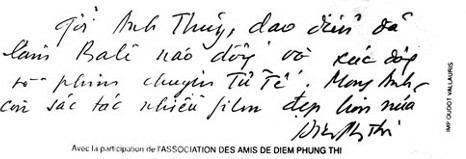 Gởi Anh Thủy, đạo diễn đã
làm Balê náo động và xúc động
với phim chuyện Tử Tế. Mong Anh
còn sác tác nhiều film đẹp hơn nữa
Diem Phung Thi
Avec la participation de l'ASSOCIATION DES AMIS DE DIEM PHUNG THI
IMP OUDOT VALLAURIS